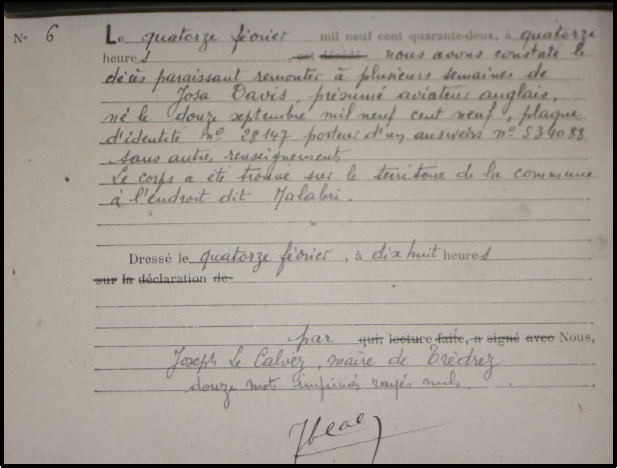 No 6 Le quatorze février mil neuf cent quarante-deux, à quatorze
heures est décédé nous avons constaté le
décès paraissant remonter à plusieurs semaines de
Josa Davis, présumé aviateur anglais,
né le douze septembre mil neuf cent neuf, plaque
d'identité no 28147 porteur d'un ausweis no 534088
sans autres renseignements
Le corps a été trouvé sur le territoire de la commune
à l'endroit dit Malabri.
Dressé le quatorze février, à dix huit heures
sur la déclaration de
par qui, lecture faite, a signé avec Nous,
Joseph Le Calvez, maire de Trédrez
douze mots imprimés rayés nuls.